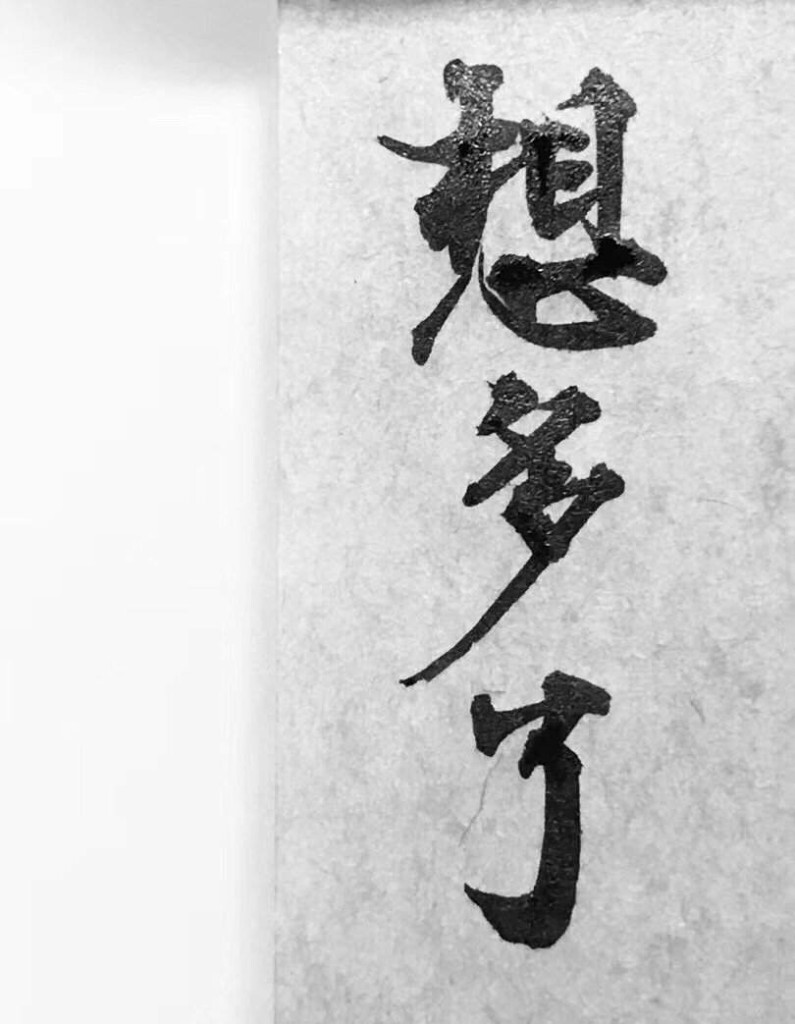 想多了